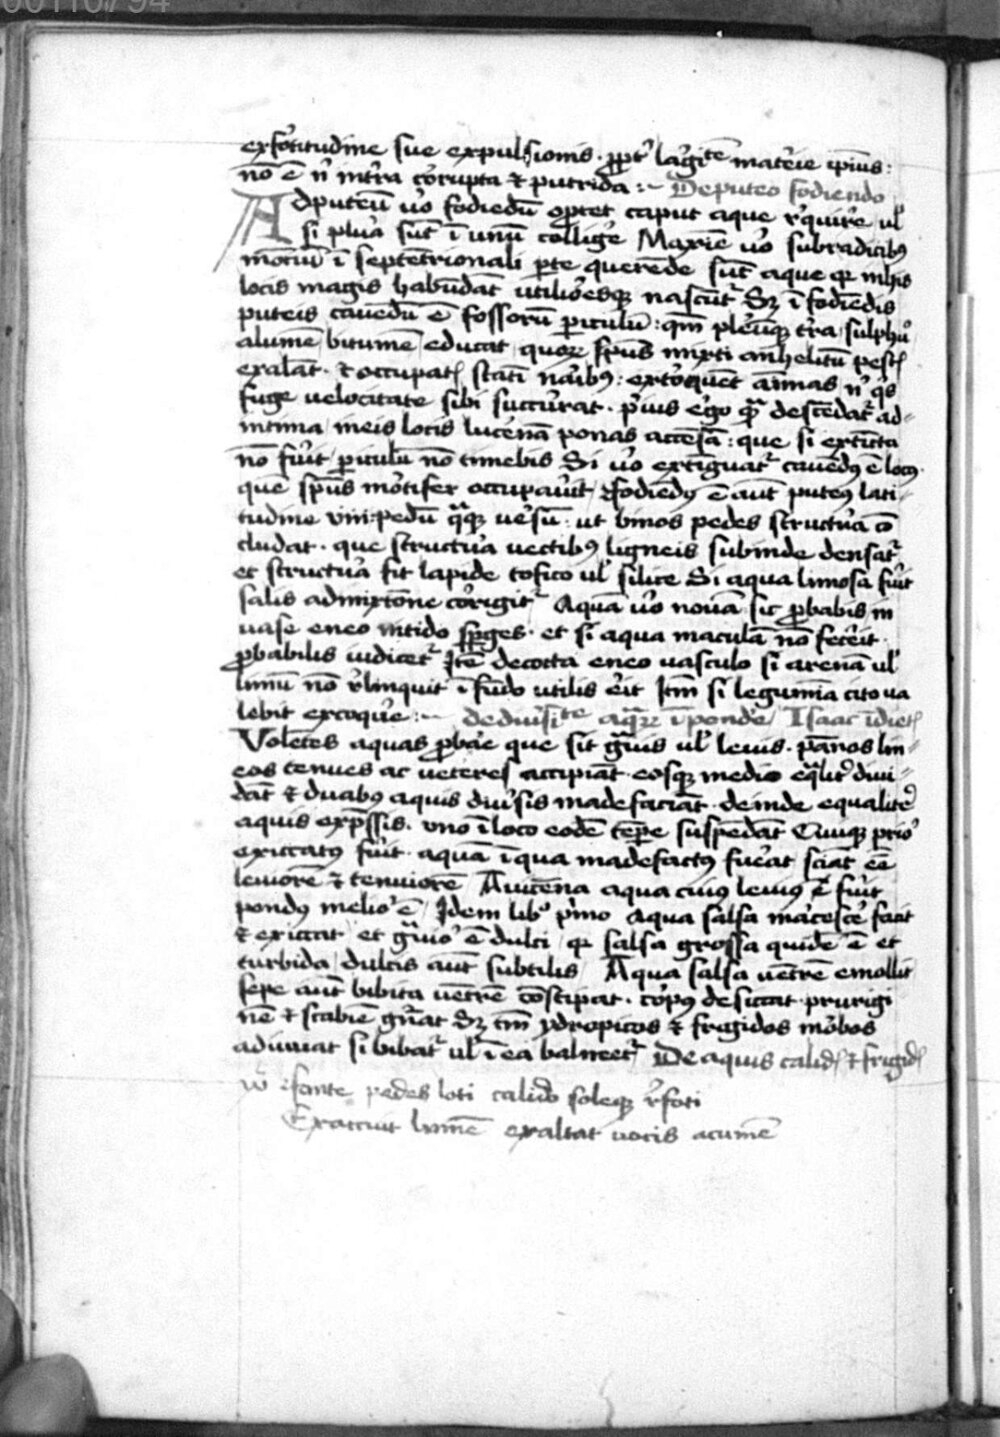 00110794
exfortitudine sue expulsionis · ꝓpt̓ larḡite materie ip̄ius :
nō ē n̓ intra corupta ⁊ putrida :~ De puteo fodiendo
Ad puteū u̓o fodiēdū oportet caput aque r̓quire ul̓
si pluã sūt ī unū collige Maxīe u̓o sub radicibꝰ
mōtiū ī septētrionali ꝑte querēde sūt aque qr̓ in his
locis magis habūdāt utilioresqꝫ nascūt᷑ Sꝫ ī fodiēdis
puteis cauedū ē fossorū ꝑiculū : qm̄ plerūqꝫ t̓ra sulphu᷑
alumē bitumē educat quoꝝ sp̄us mixti anhelitū pestꝭ
exalāt · ⁊ occupatꝭ statī naribꝰ : extorquēt aīmas n̓ qͥs
fuge uelocitate sibi succurrat · pͥus ergo qͣ descēdat᷑ ad-
intima meis locis lucernā ponas accēsā : que si extīcta
nō fu̓it ꝑiculū nō timebis Si u̓o extīguat᷑ cauēdꝰ ē locꝰ
quē sp̄us mortifer occupau̓it fodiēdꝰ ē aūt puteꝰ lati-
tudine viii · pedū qͣqꝫ uersū : ut binos pedes structura cō
cludat · que structura uectibꝰ ligneis subinde densat᷑
et structura fit lapide tofico ul̓ silice Si aqua limosa fu̓it
salis admixtōne corigit᷑ Aquā u̓o nouā sic ꝓbabis in
uase eneo nitido sꝑges · et si aqua maculā nō fecerit ·
ꝓbabilis iudicet᷑ Itē decocta eneo uasculo si arenā ul̓
limū nō r̓linquit ī fūdo utilis erit Itm̄ si legumīa cito ua
lebit excoque :~ de diu̓site aqͣꝝ ī ponde / Isaac ī dietꝭ
Volētes aquas ꝓbare que sit gͣuis ul̓ leuis · pānos lin-
eos tenues ac ueteres accipiāt · eosqꝫ medio eqͣlit̓ diui-
dāt ⁊ duabꝰ aquis diu̓sis madefaciāt · deinde equalit̓
aquis exp̄ssis · uno ī loco eodē tēꝑe suspēdāt Cuiusqꝫ prio᷑
exiccatꝰ fu̓it · aquā ī qua madefactꝰ fuerat sciāt eē
leuiorē ⁊ tenuiorē Auicēna aqua cuiꝰ leuiꝰ fu̓it
pondꝰ melio᷑ ē Idem libꝰ pͥmo Aqua salsa macescere facit
⁊ exiccat · et gͣuio᷑ ē dulci qr̓ salsa grossa quidē ē et
turbida dulcis aūt subtilis Aqua salsa uētrē emollit
sepe aūt bibita uētrē cōstipat · corpꝰ desiccat · prurigi
nē ⁊ scabiē gn̓at Sꝫ tm̄ ydropicos ⁊ frigidos morbos
adiuuat si bibat᷑ ul̓ ī ea balneet᷑ De aquis calidꝭ ⁊ frigidꝭ
fonte pedes loti calido soleqꝫ r̓foti
Exacciut lumē exaltat uocis acumē